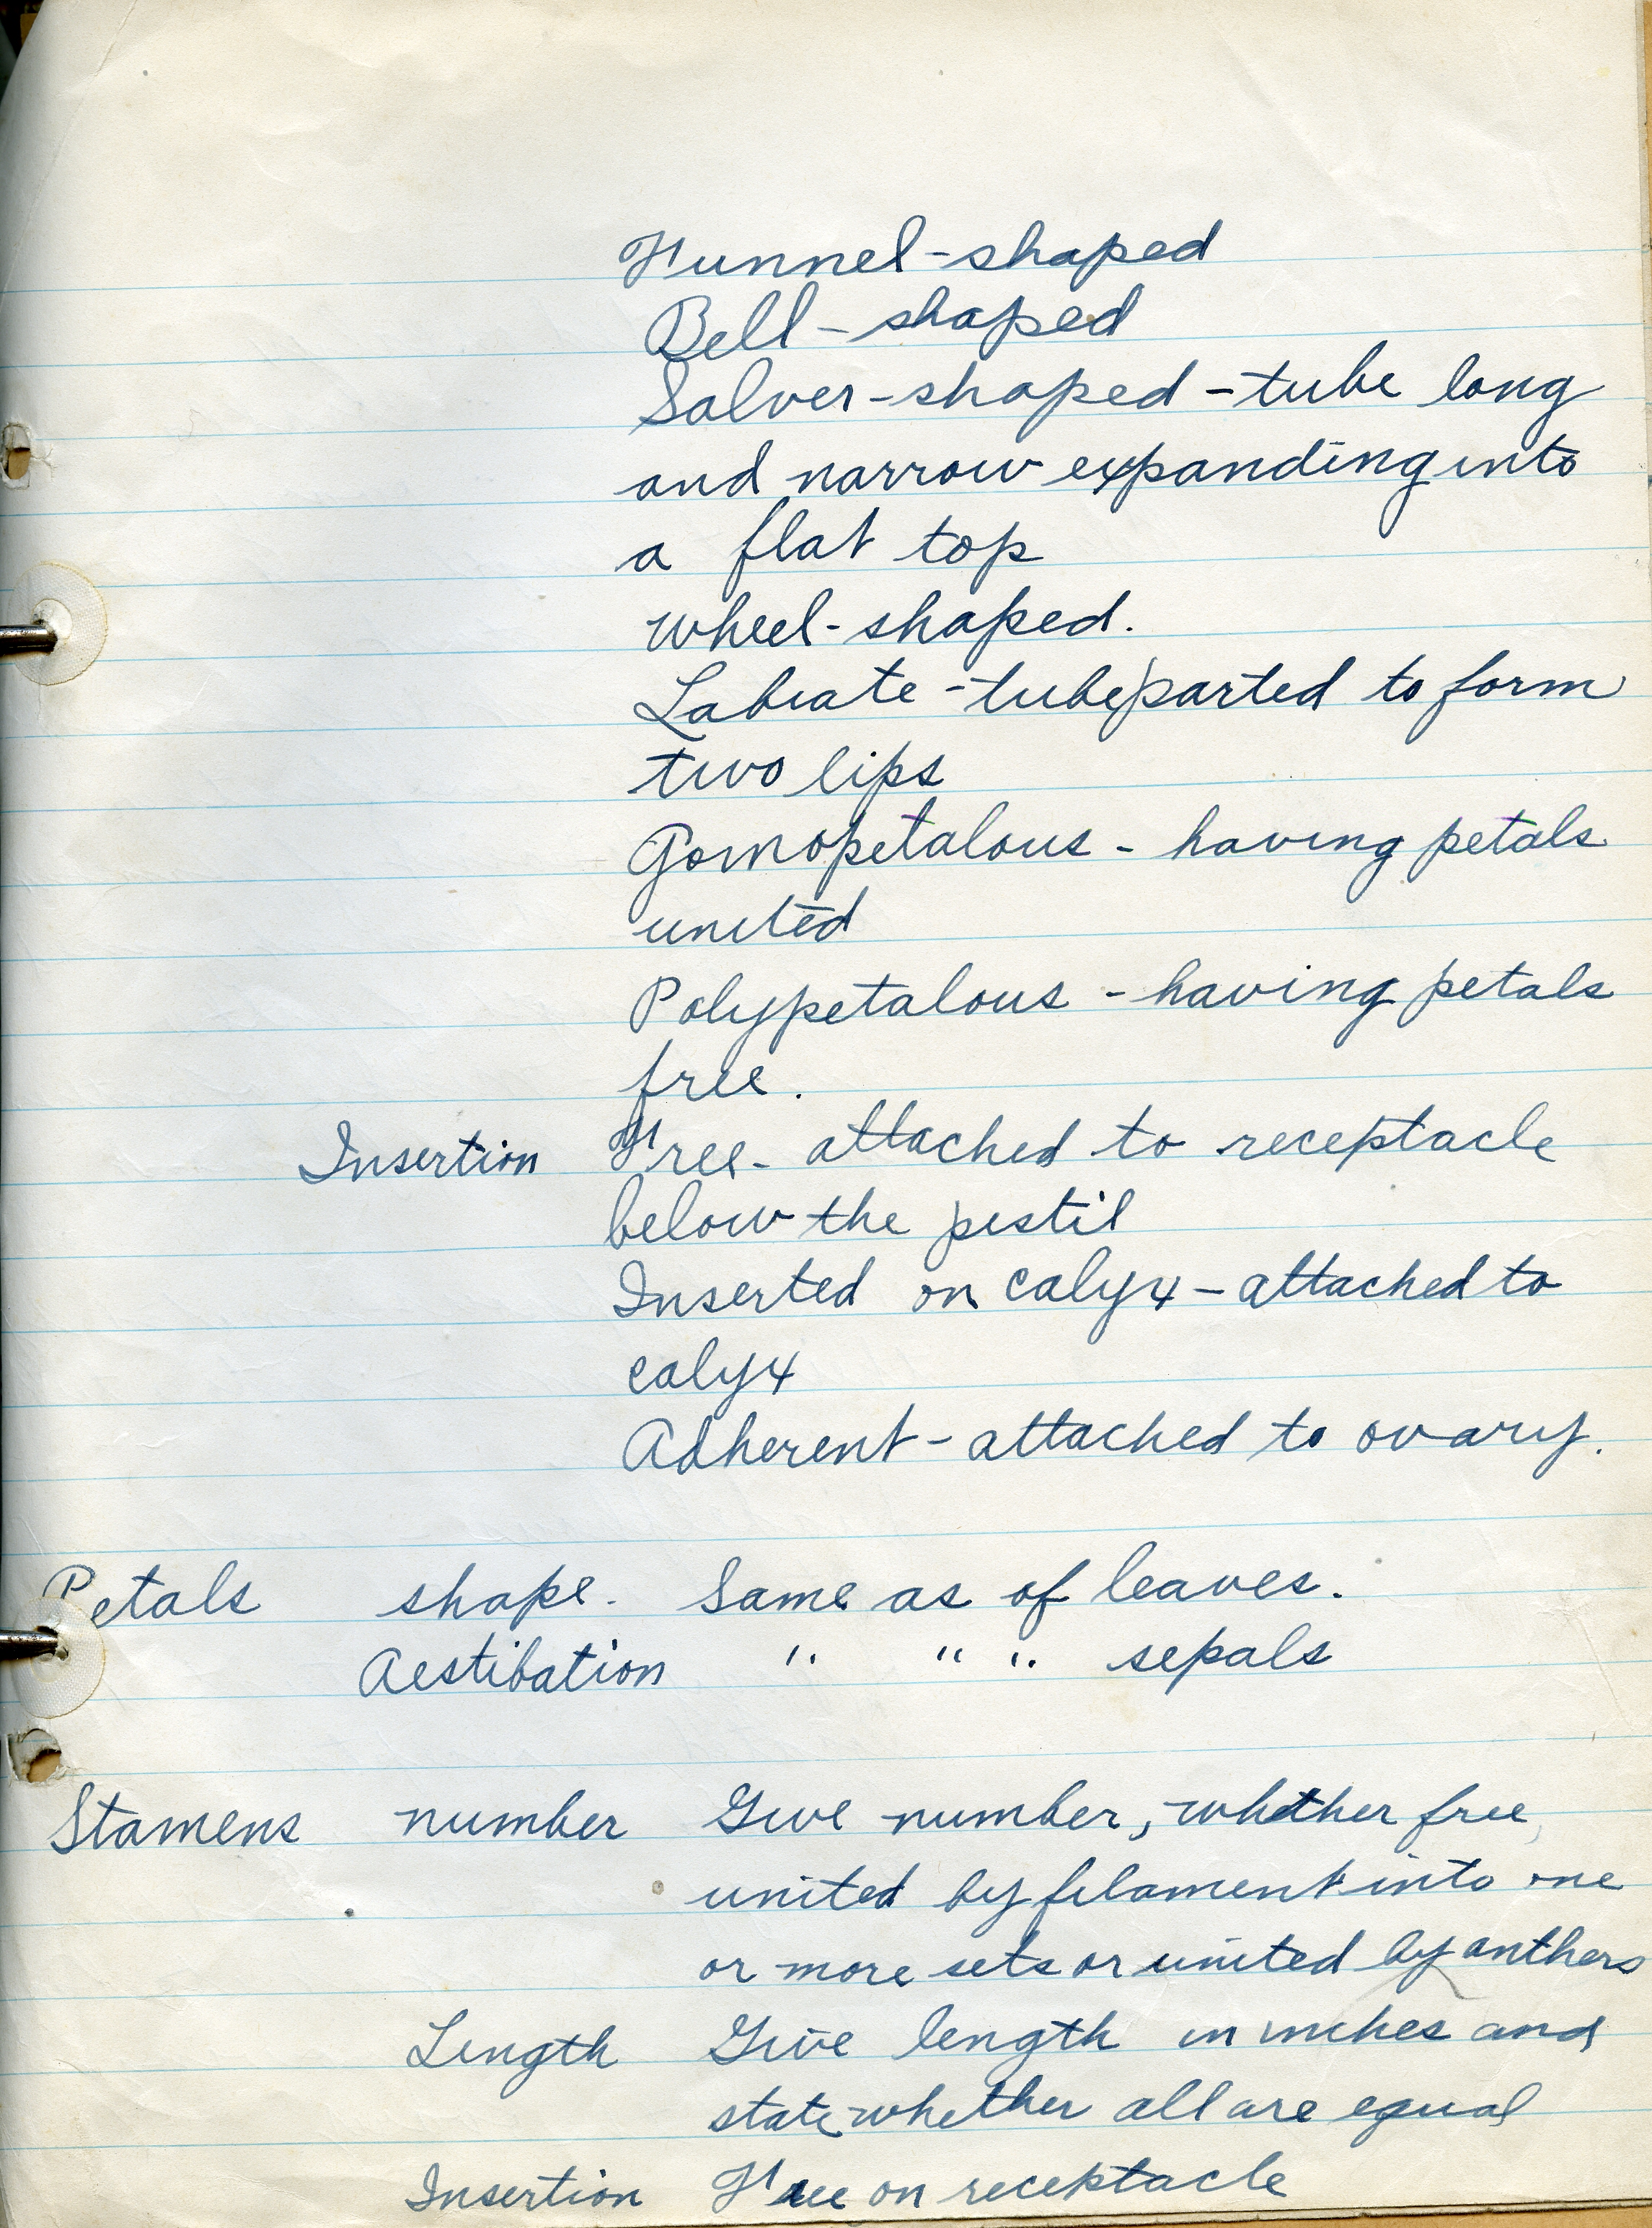 Funnel-shaped
Bell-shaped
Salver-shaped - tube long
and narrow expanding into
a flat top
wheel-shaped.
Labiate - tube parted to form
two lips
Gomopetalous - having petals
united
Polypetalous - having petals
free.
Insertion Free - attached to receptacle
below the pistil
Inserted on calyx - attached to
calyx
Adherent - attached to ovary.
Petals shape. Same as of leaves.
Aestibation " " " sepals
Stamens number Give number, whether free,
united by filament into one
or more sets or united by anthers
Length Give length in inches and
state whether all are equal
Insertion Free on receptacle